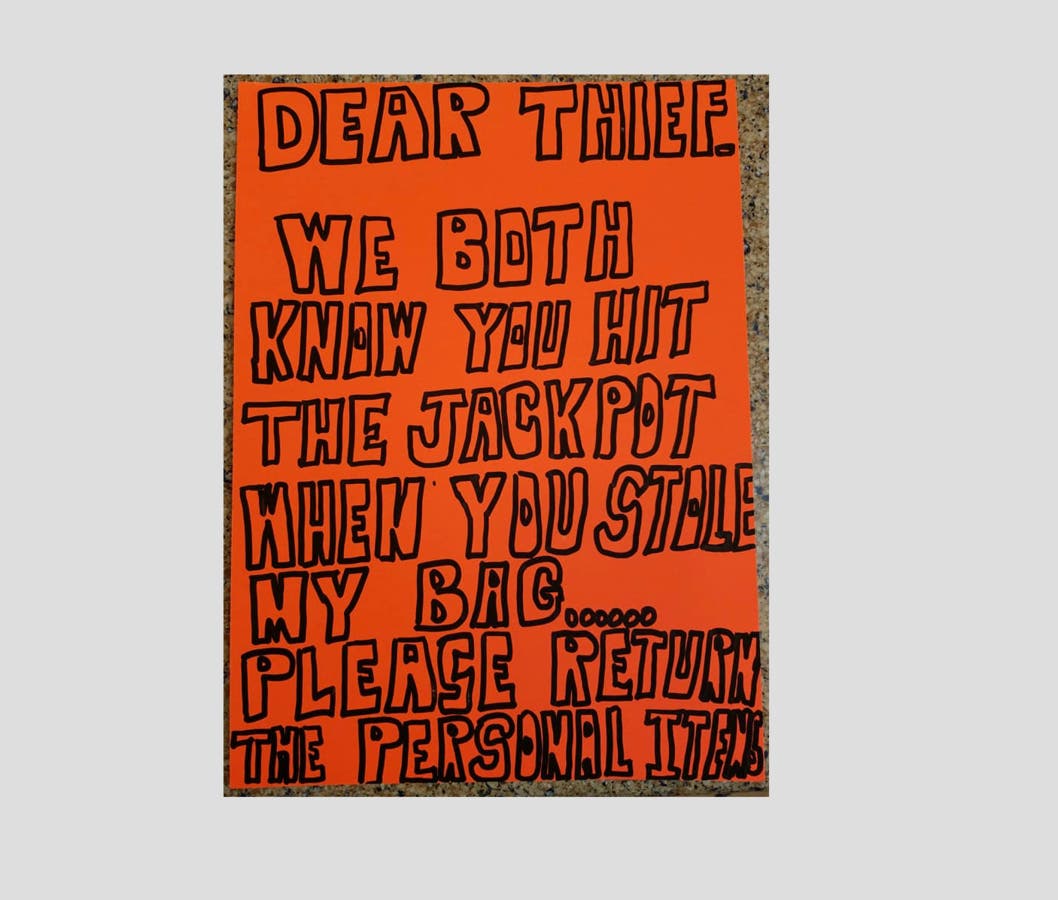 DEAR THIEF.
WE BOTH
KNOW YOU HIT
THE JACKPOT
WHEN YOU STOLE
MY BAG.......
PLEASE RETURN
THE PERSONAL ITEMS